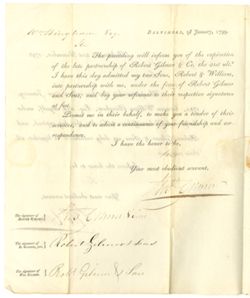 Baltimore, 1st January, 1799.
Sir,
The preceding will inform you of the expiration
of the late partnership of Robert Gilmor & Co. the 31st ult.
I have this day admitted my two Sons, Robert & William,
into partnership with me, under the firm of Robert Gilmor
and Sons; and beg your reference to their respective signatures
at foot.
Permit me in their behalf, to make you a tender of their
services, and to solicit a continuance of your friendship and cor-
respondence.
I have the honor to be,
Your most obedient servant,
Robt Gilmor
The signature of
Robert Gilmor & Sons
The signature of
Robert Gilmor & Sons
The signature of
Robt Gilmor & Sons